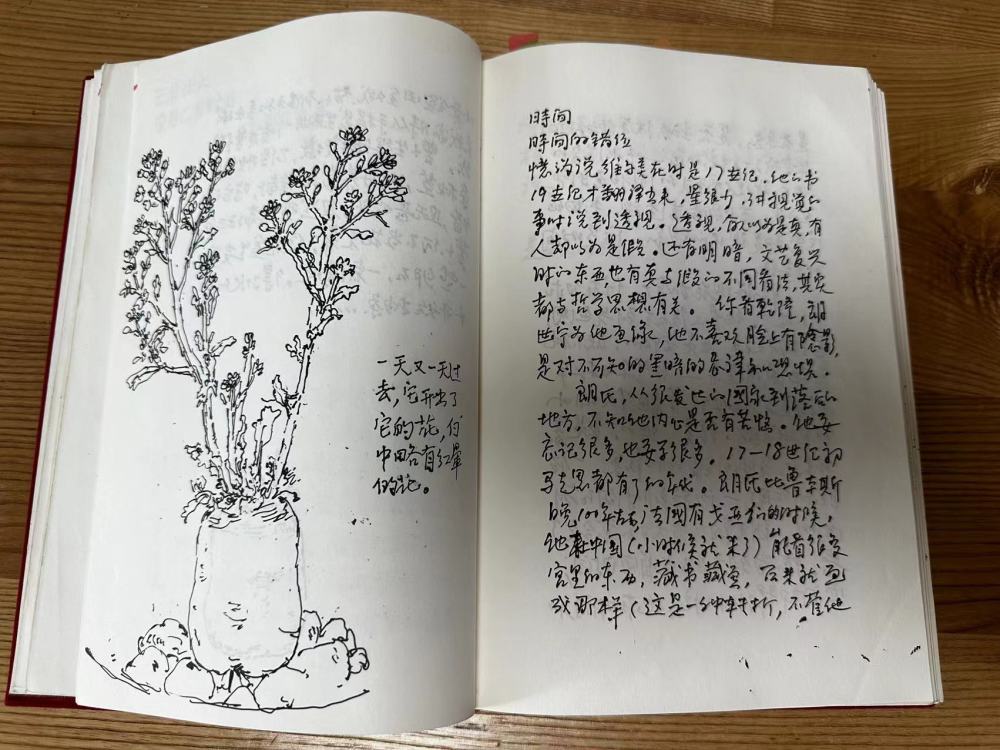 一天又一天过
去，它开出了
它的花，
中 各有红晕
的花。
时间
时间的错位
说维 在时是17世纪，他的书
19世纪才翻译出来，量很少，讲视觉的
事时说到透视。透视，有人以为是真，有
人却以为是假。还有明暗，文艺复兴
时的东西，也有真与假的不同看法，其实
都与哲学思想有关。你看乾隆，郎
世宁为他画像，他不喜欢脸上有陰影，
是对不可知的黑暗的 和恐惧。
郎氏，从很发达的國家到落后的
地方，不知他内心是否有苦恼。他要
忘记很多，也要学很多。17—18世纪初
都有了的年代。郎氏比鲁本斯
晚100年左右，法國有 的时候，
他来中国（小时候就来了）能看很多
宫里的东西，藏书藏画，后来就画
成那样（这是一种转折，不管他